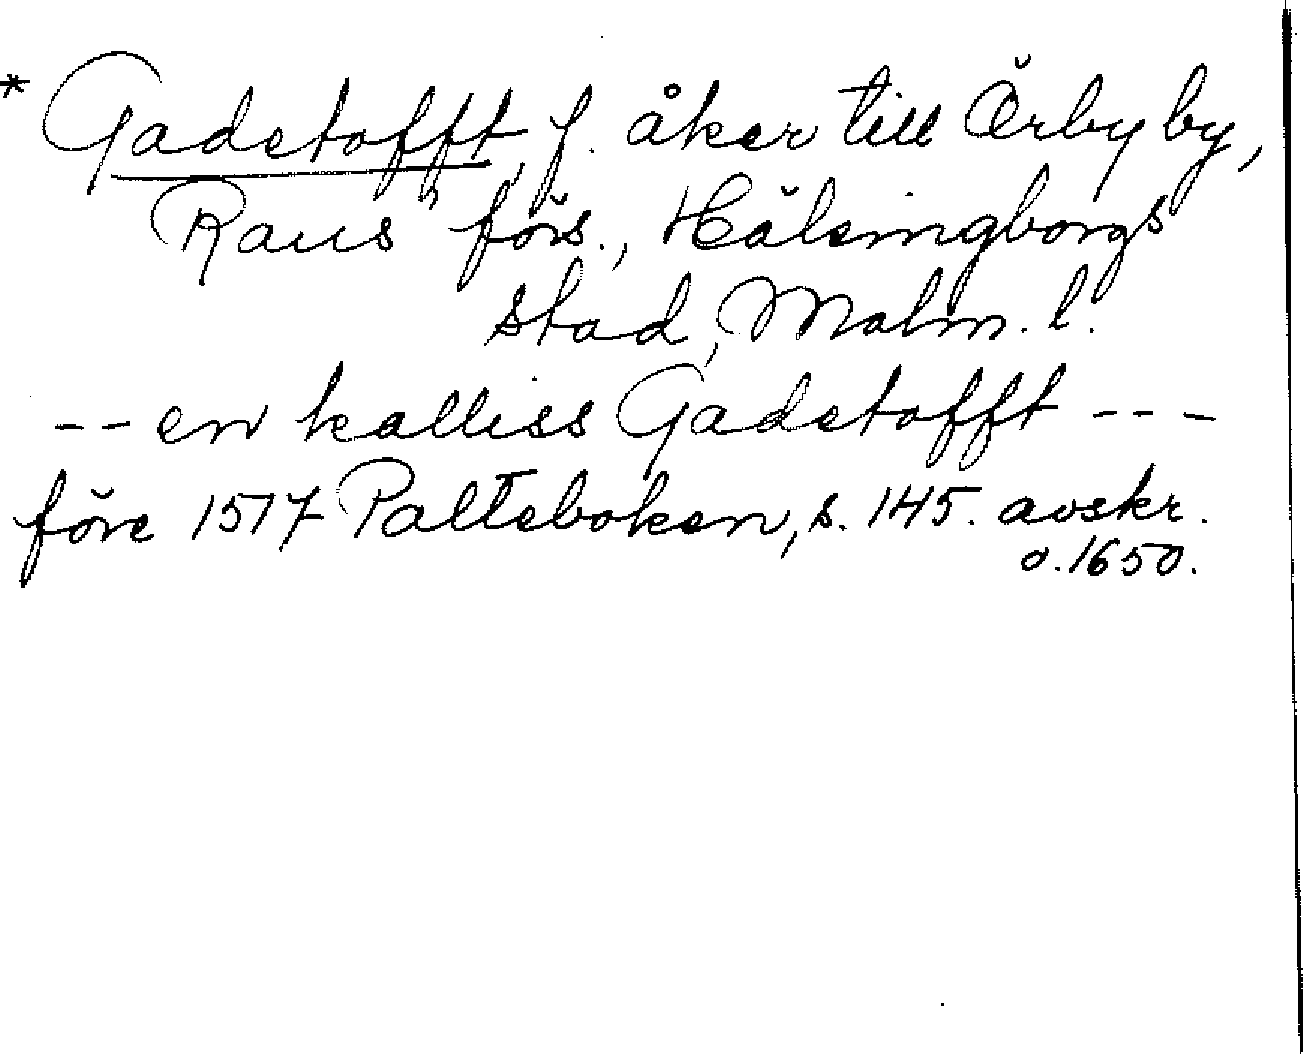 * Gadetofft, f. åker till Örby by,
Raus förs., Hälsingborgs
stad, Malm. l.
-- en kalliss Gadetofft ---
före 1517 Palteboken, s. 145. avskr.
o. 1650.